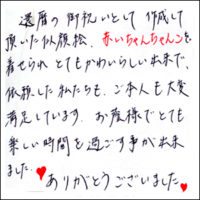 還暦の御祝いとして作成して
頂いた似顔絵、赤いちゃんちゃんこを
着せられとてもかわいらしい出来で、
依頼した私たちも、ご本人も大変
満足しています。お陰様でとても
楽しい時間を過ごす事が出来
ました。♥
ありがとうございました♥